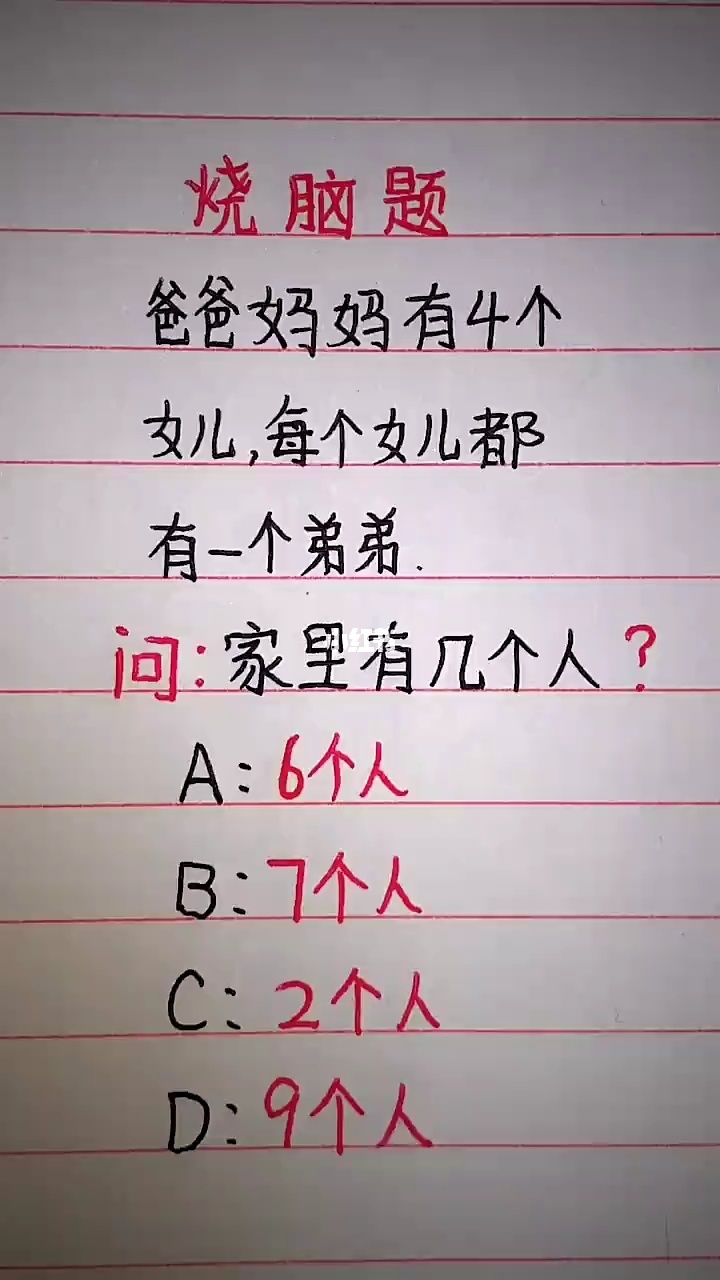 烧脑题
爸爸妈妈有4个
女儿,每个女儿都
有一个弟弟.
问:家里有几个人?
小红书
A:6个人
B:7个人
C:2个人
D:9个人